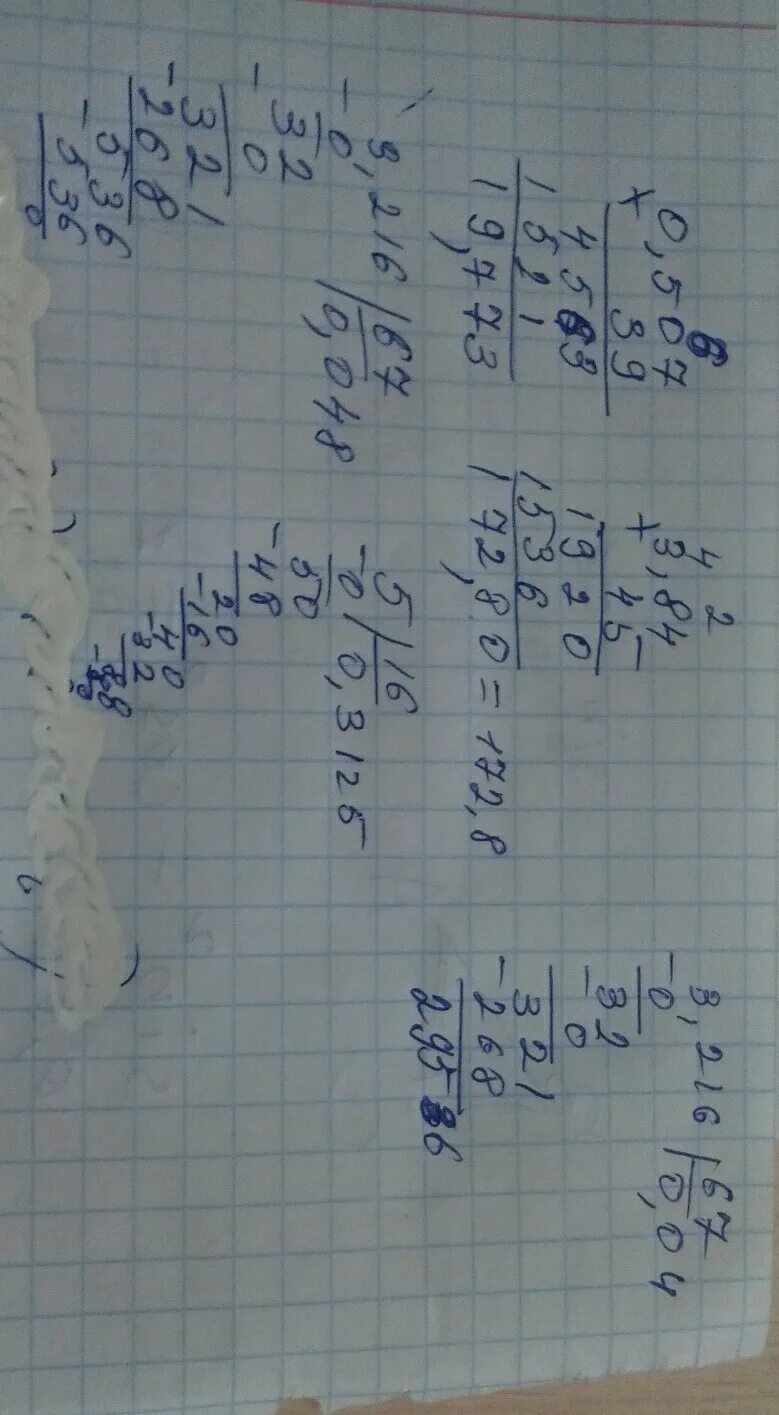 6
0,507
× 39
4563
1521
19,773
4 2
× 3,84
45
1920
1536
172,80 = 172,8
3,216 | 67
- 0 0,048
32
- 0
321
- 268
536
- 536
0
5 | 16
- 0 0,3125
50
- 48
20
- 16
40
- 32
3,216 | 67
- 0 0,04
32
- 0
321
- 268